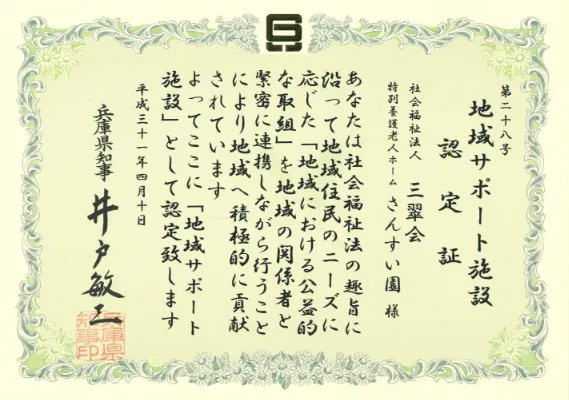 第二十八号
地域サポート施設
認定証
社会福祉法人 三翠会
特別養護老人ホーム さんすい園 様
あなたは社会福祉法の趣旨に
沿って地域住民のニーズに
応じた「地域における公益的
な取組」を地域の関係者と
緊密に連携しながら行うこと
により地域へ積極的に貢献
されています
よってここに「地域サポート
施設」として認定致します
平成三十一年四月十日
兵庫県知事 井戸敏三
兵庫県
知事印